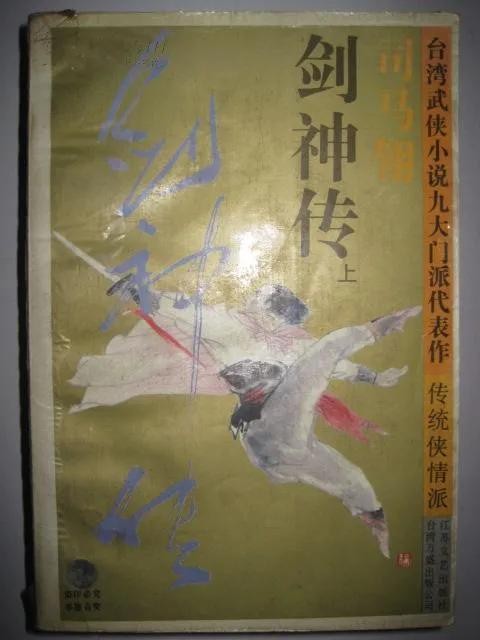 台湾武侠小说九大门派代表作
传统侠情派
江苏文艺出版社
台湾万盛出版公司
司马翎
剑神传
上
剑神传
翻印必究